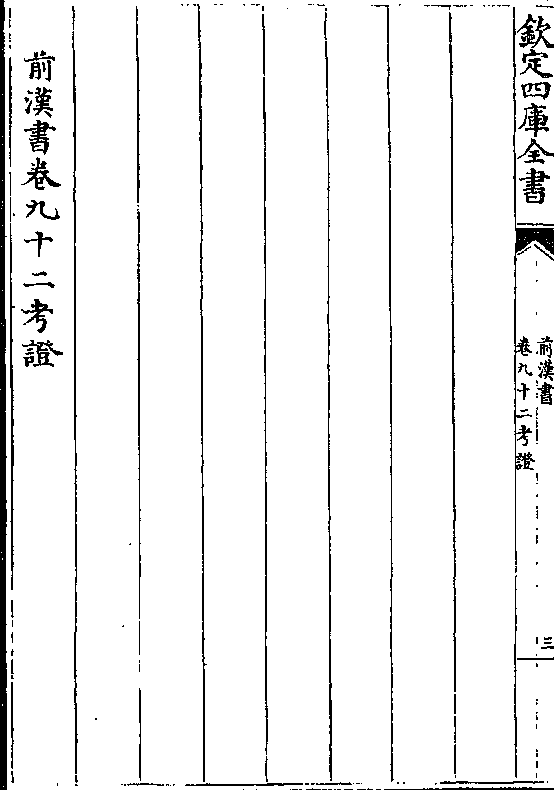 欽定四庫全書
前漢書
卷九十二考證
三
前漢書卷九十二考證